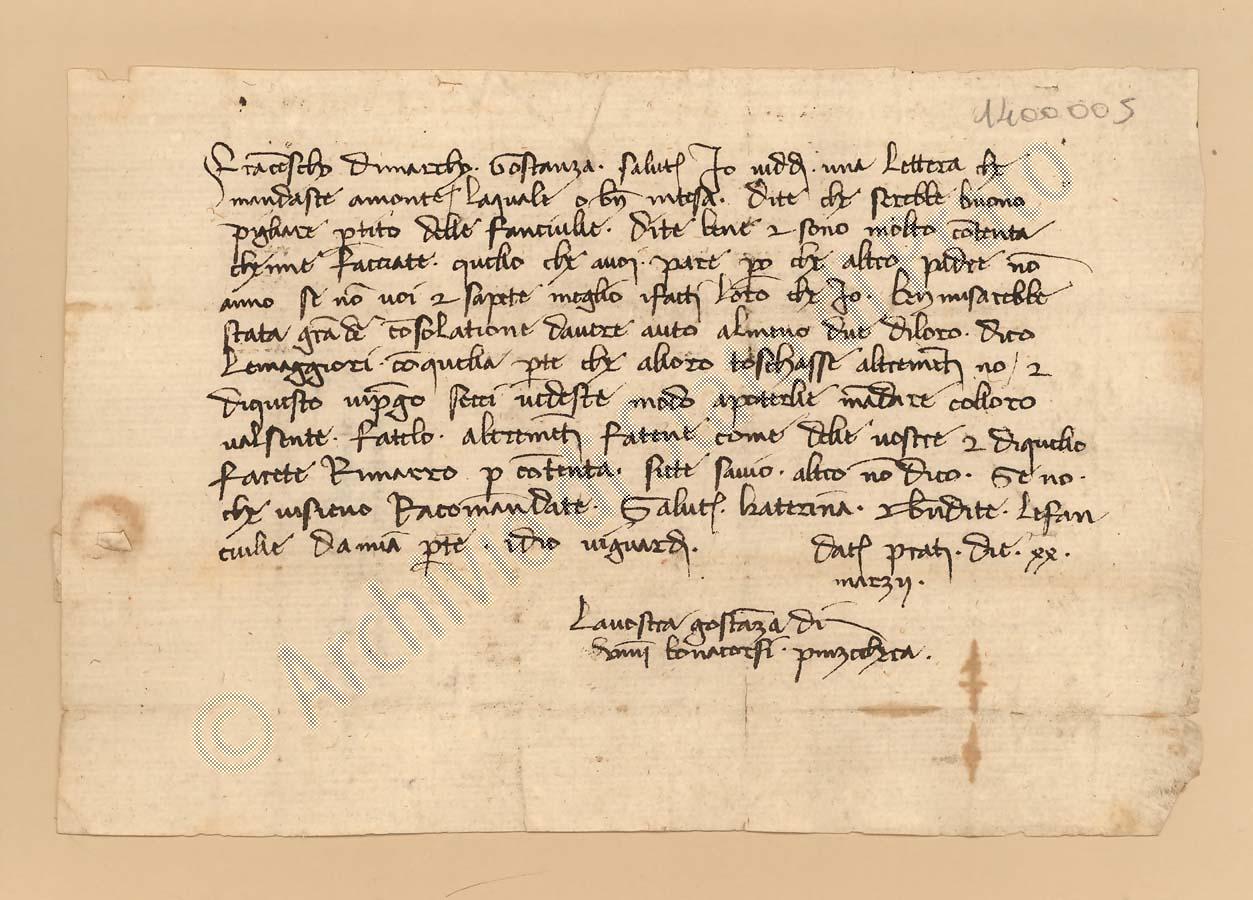 1400005
Francescho dimarcho. Gostanza. salutj Io viddj. una lettera che
mandaste amonte, laquale o bn intesa. dite che serebbe buono
pigliare ptito delle fanciulle. dite bene τ sono molto cōtenta
chenne facciate. quello che avoi. pare po che altro padre nō
anno se nō voi τ sapete meglio ifatti loro che Io. ben misarebbe
stata grāde cōsolatione davere auto almeno due diloro. dico
lemaggiori. cō quella pte che alloro toschasse altremētj no / τ
diquesto vipgo secci vedeste modo apoterlle mādare colloro
valsente. fatelo. altremētj fatene come delle vostre τ diquello
facete Rimarro p cōtenta. siete savio. altro nō dico. Se no.
che visieno Racomādate. Salutj. katerina. τ bndite. lefan
ciulle da mia pte. idio viguardj.
datj pratj. die. xx.
marzij.
Lavostra gostāza di
bonacorsi. pinzochera.
© Archivio di Stato di Prato